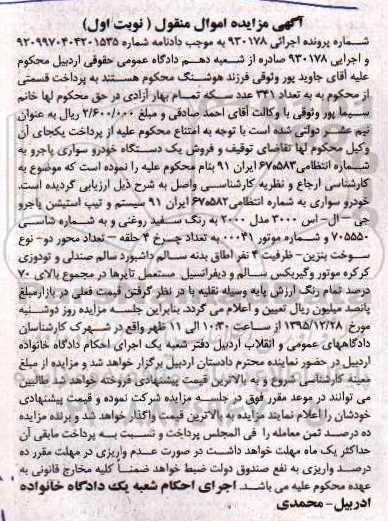 آگهی مزایده اموال منقول ( نوبت اول)
شماره پرونده اجرائی ۹۳۰۱۷۸ به موجب دادنامه شماره ۹۲۰۹۹۷۰۴۰۴۲۰۱۵۳۵
و اجرایی ۹۳۰۱۷۸ صادره از شعبه دهم دادگاه عمومی حقوقی اردبیل محکوم
علیه آقای جاوید پور وثوقی فرزند هوشنگ محکوم هستند به پرداخت قسمتی
از محکوم به به تعداد ۳۴۱ عدد سکه تمام بهار آزادی در حق محکوم لها خانم
سیما پور وثوقی با وکالت آقای احمد صادقی و مبلغ ۲/۶۰۰/۰۰۰ ریال به عنوان
نیم عشر دولتی شده است با توجه به امتناع محکوم علیه از پرداخت یکجای آن
وکیل محکوم لها تقاضای توقیف و فروش یک دستگاه خودرو سواری پاجرو به
شماره انتظامی ۶۷۵۵۸۳ ایران ۹۱ بنام محکوم علیه را نموده است که موضوع به
کارشناسی ارجاع و نظریه کارشناسی واصل به شرح ذیل ارزیابی گردیده است.
خودرو سواری به شماره انتظامی ۶۷۵۵۸۲ ایران ۹۱ سیستم و تیپ استیشن پاجرو
جی – ال – اس ۳۰۰۰ مدل ۲۰۰۰ به رنگ سفید روغنی و به شماره شاسی
۷۰۵۵۵۰ و شماره موتور ۰۰۰۴۱ به تعداد چرخ ۴ حلقه – تعداد محور دو– نوع
سوخت بنزین– ظرفیت ۴ نفر اطاق بدنه سالم داشبورد سالم صندلی و تودوزی
کرکره موتور وگیربکس سالم و دیفرانسیل مستعمل تایرها در مجموع بالای ۷۰
درصد تمام رنگ ارزش پایه وسیله نقلیه با در نظر گرفتن قیمت فعلی در بازار مبلغ
پانصد میلیون ریال تعیین و اعلام می گردد. بنابراین جلسه مزایده روز دوشنبه
مورخ ۱۳۹۵/۱۲/۲۸ از ساعت ۱۰:۳۰ الی ۱۱ ظهر واقع در شهرک کارشناسان
دادگاههای عمومی و انقلاب اردبیل دفتر شعبه یک اجرای احکام دادگاه خانواده
اردبیل در حضور نماینده محترم دادستان اردبیل برگزار خواهد شد و مزایده از مبلغ
معینه کارشناسی شروع و به بالاترین قیمت پیشنهادی فروخته خواهد شد طالبین
می توانند در موعد مقرر فوق در جلسه مزایده شرکت نموده و قیمت پیشنهادی
خودشان را اعلام نمایند مزایده به بالاترین قیمت واگذار خواهد شد و برنده مزایده
ده درصد ثمن معامله را فی المجلس پرداخت و نسبت به پرداخت مابقی آن
حداکثر یک ماه مهلت خواهد داشت در صورت عدم واریزی در مهلت مقرر ده
درصد واریزی به نفع صندوق دولت ضبط خواهد شد ضمناً کلیه مخارج قانونی به
عهده محکوم علیه می باشد. اجرای احکام شعبه یک دادگاه خانواده
اردبیل– محمدی